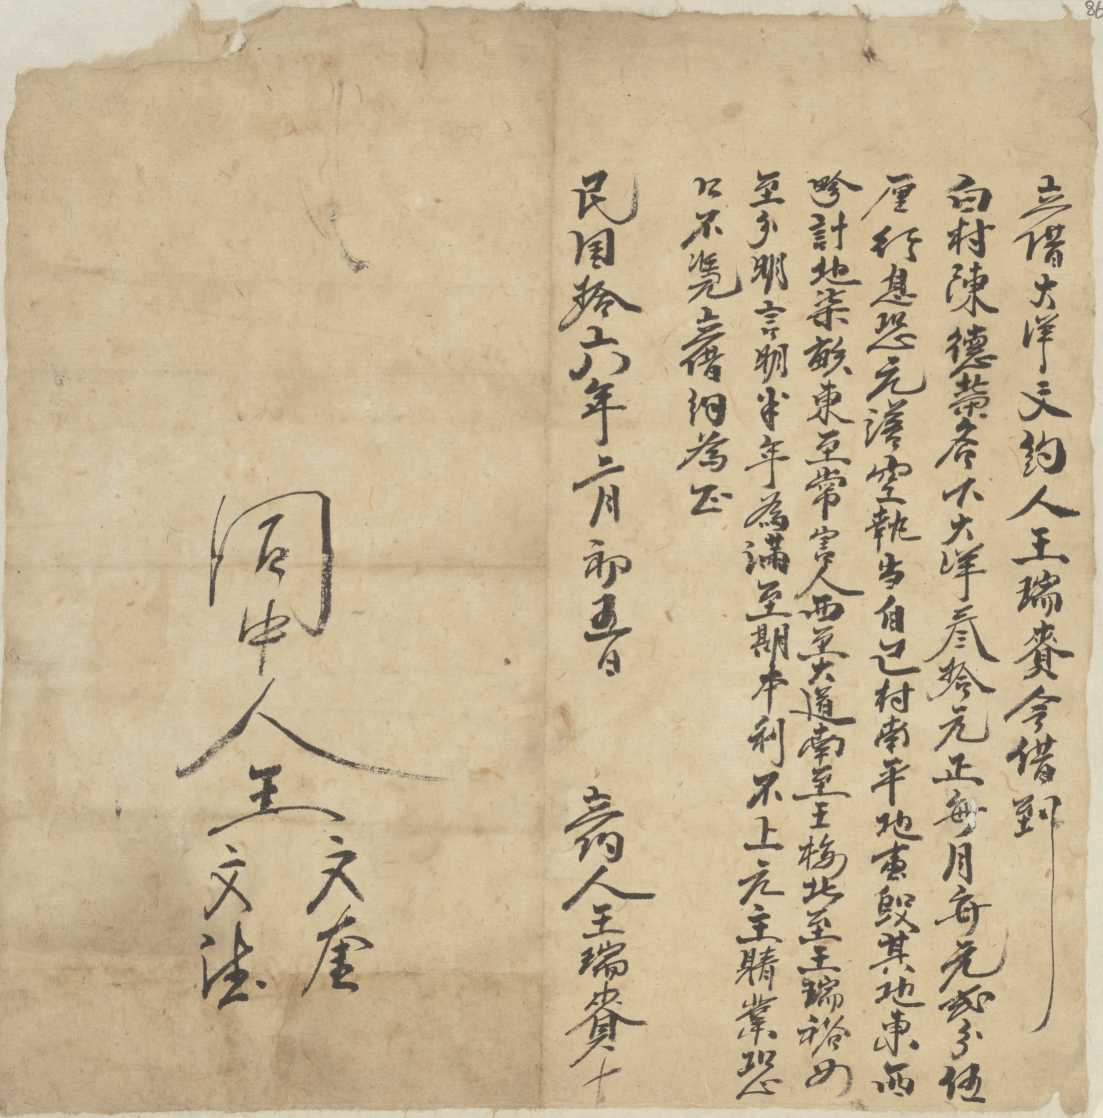 86
立借大洋文約人王瑞賚今借到
白村陳德榮名下大洋叁拾元正每月每元弍分伍
厘行息恐元議空執當自己村南平地壹段其地東西
畛計地柒畝東至常害人西至大道南至王梅北至王瑞裕四
至分明言明半年為滿至期本利不上元主睛業恐
口不凭立借約為正
民国拾六年二月初五日
立約人王瑞賚十
同中人王
文奎
文法